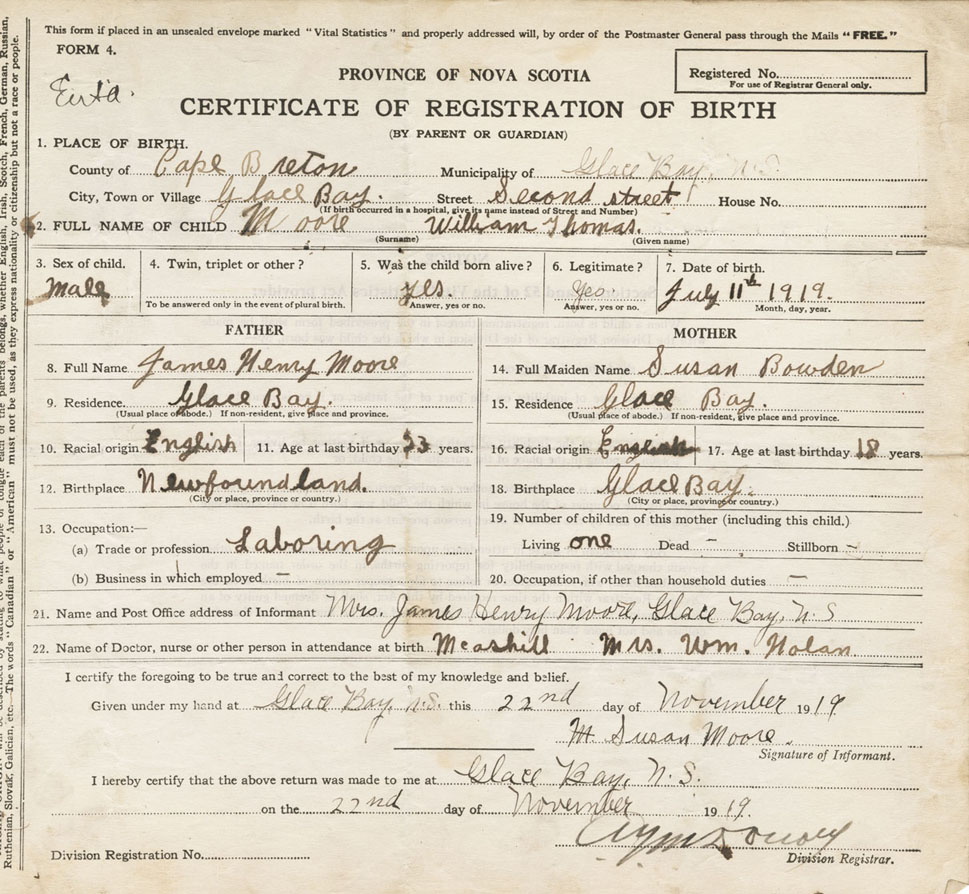 This form if placed in an unsealed envelope marked "Vital Statistics" and properly addressed will, by order of the Postmaster General pass through the Mails "FREE."
FORM 4.
PROVINCE OF NOVA SCOTIA
Registered No.
For use of Registrar General only.
CERTIFICATE OF REGISTRATION OF BIRTH
(BY PARENT OR GUARDIAN)
1. PLACE OF BIRTH.
County of Cape Breton Municipality of Glace Bay, N.S.
City, Town or Village Glace Bay. Street Second street House No.
(If birth occurred in a hospital, give its name instead of Street and Number)
2. FULL NAME OF CHILD Moore William Thomas.
(Surname) (Given name)
3. Sex of child. 4. Twin, triplet or other? 5. Was the child born alive? 6. Legitimate? 7. Date of birth.
Male yes. Yes. July 11th 1919.
To be answered only in the event of plural birth. Answer, yes or no. Answer, yes or no. Month, day, year.
FATHER MOTHER
8. Full Name James Henry Moore 14. Full Maiden Name Susan Bowden
9. Residence. Glace Bay. 15. Residence Glace Bay.
(Usual place of abode.) If non-resident, give place and province. (Usual place of abode.) If non-resident, give place and province.
10. Racial origin English 11. Age at last birthday 23 years. 16. Racial origin English 17. Age at last birthday 18 years.
12. Birthplace Newfoundland. 18. Birthplace Glace Bay.
(City or place, province or country.) (City or place, province or country.)
13. Occupation:— 19. Number of children of this mother (including this child.)
(a) Trade or profession Laboring Living one Dead – Stillborn –
(b) Business in which employed — 20. Occupation, if other than household duties —
21. Name and Post Office address of Informant Mrs. James Henry Moore, Glace Bay, N.S
22. Name of Doctor, nurse or other person in attendance at birth Mrs. Wm. Nolan.
I certify the foregoing to be true and correct to the best of my knowledge and belief.
Given under my hand at Glace Bay, N.S. this 22nd day of November 1919.
Susan Moore.
Signature of Informant.
I hereby certify that the above return was made to me at Glace Bay, N.S.
on the 22nd day of November 1919.
Division Registration No. Division Registrar.